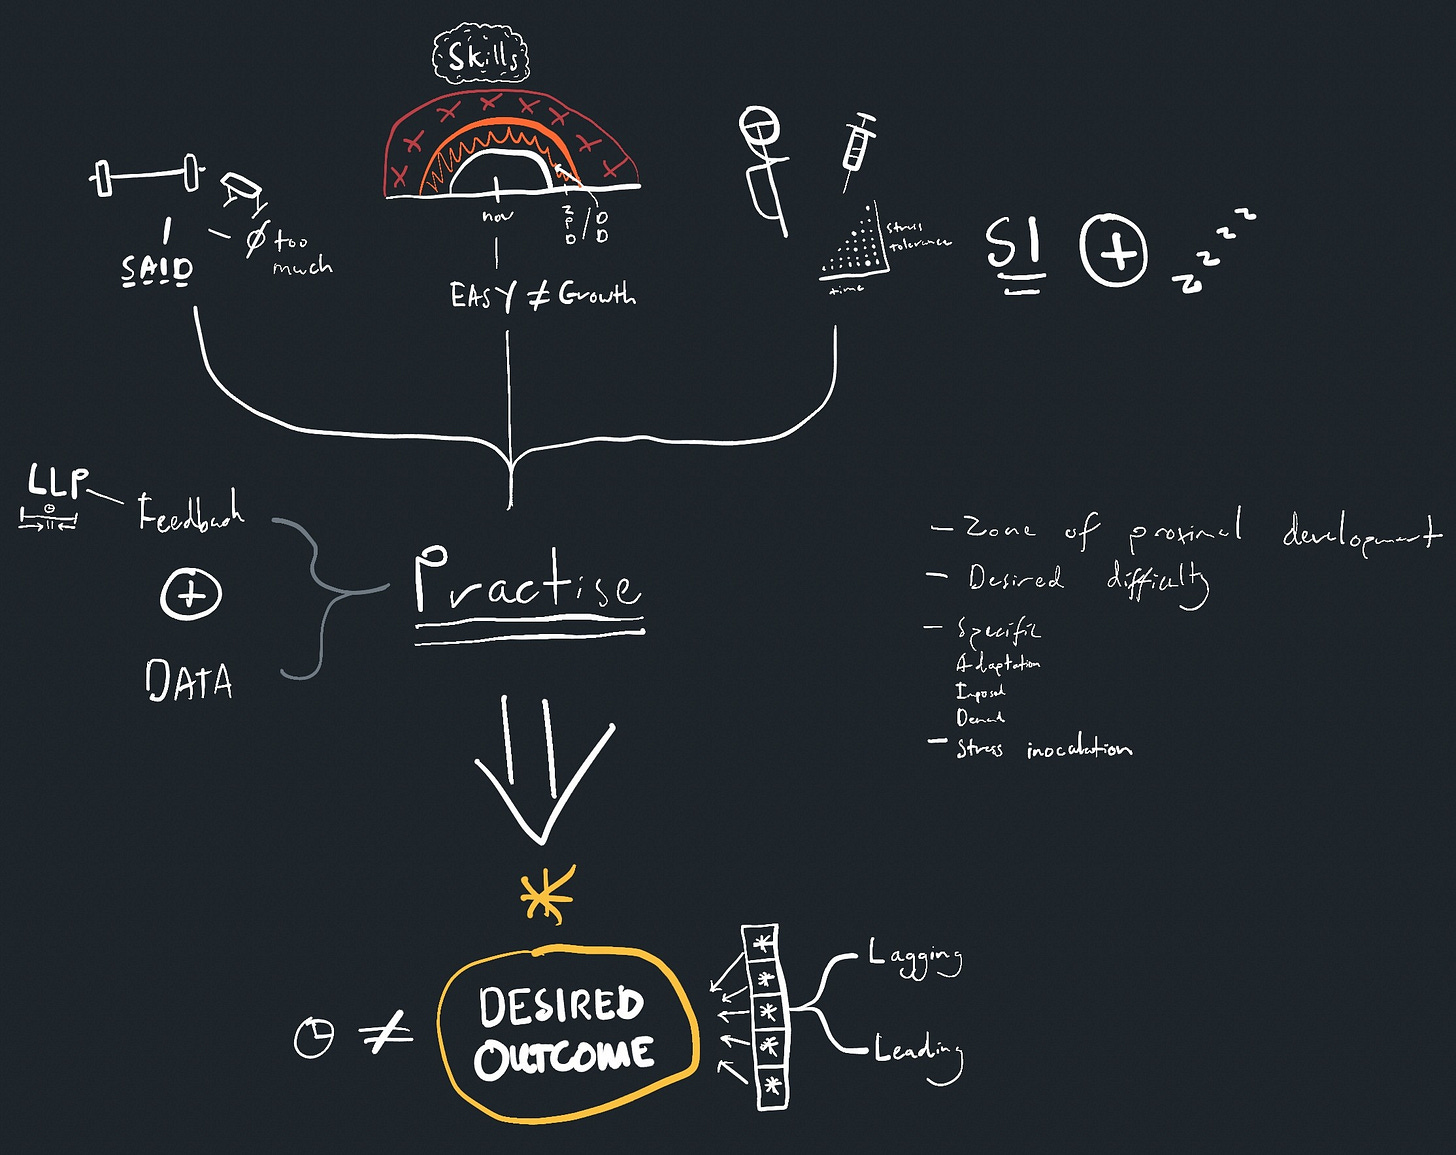 Skills
now
ZPD / DD
SAID
Ø too
much
EASY ≠ Growth
stress
tolerance
time
SI + z z z z
LLP
Feedback
+
DATA
Practise
- Zone of proximal development
- Desired difficulty
- Specific
Adaptation
Imposed
Demand
- Stress inoculation
≠
DESIRED
OUTCOME
Lagging
Leading